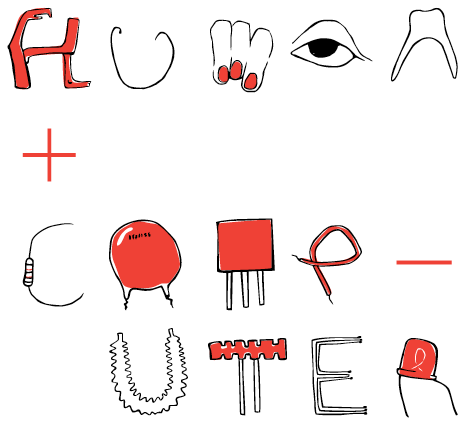 HUMAN
+
COMP-
UTER